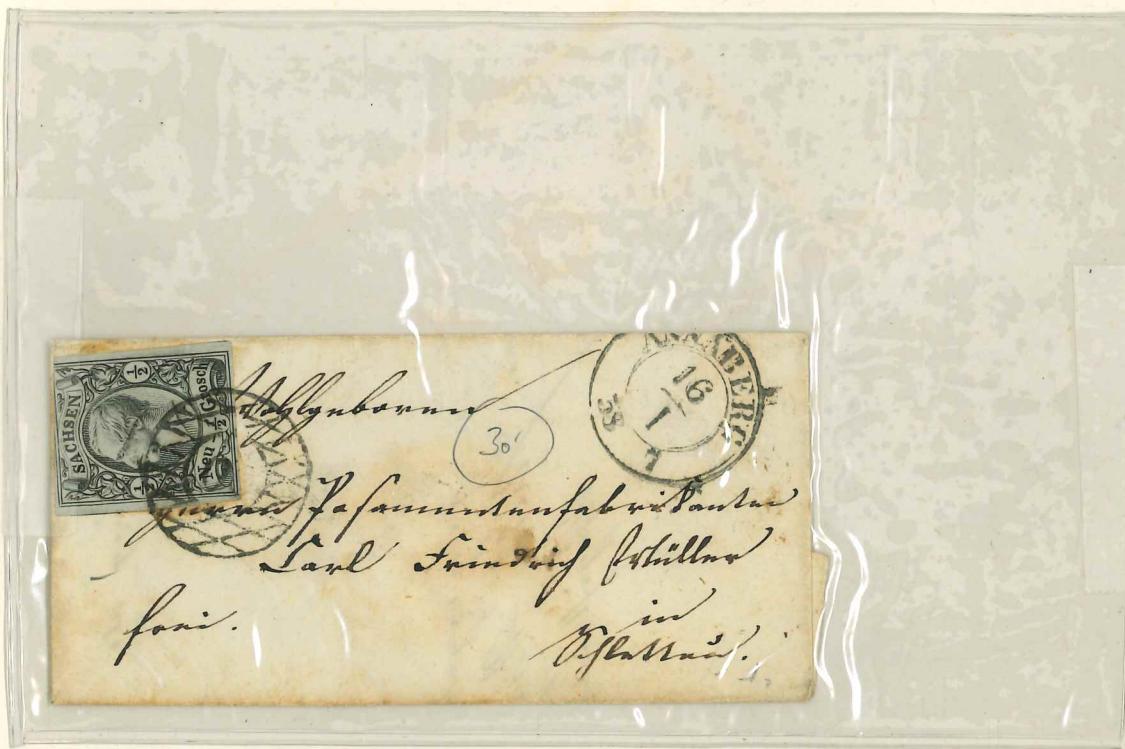 SACHSEN
½
½
Neu ½ Grosch
ANNABERG
16
I
58
Wohlgeboren
30
Herrn Posamentenfabrikanten
Carl Friedrich Müller
frei.
in
Schlettau.